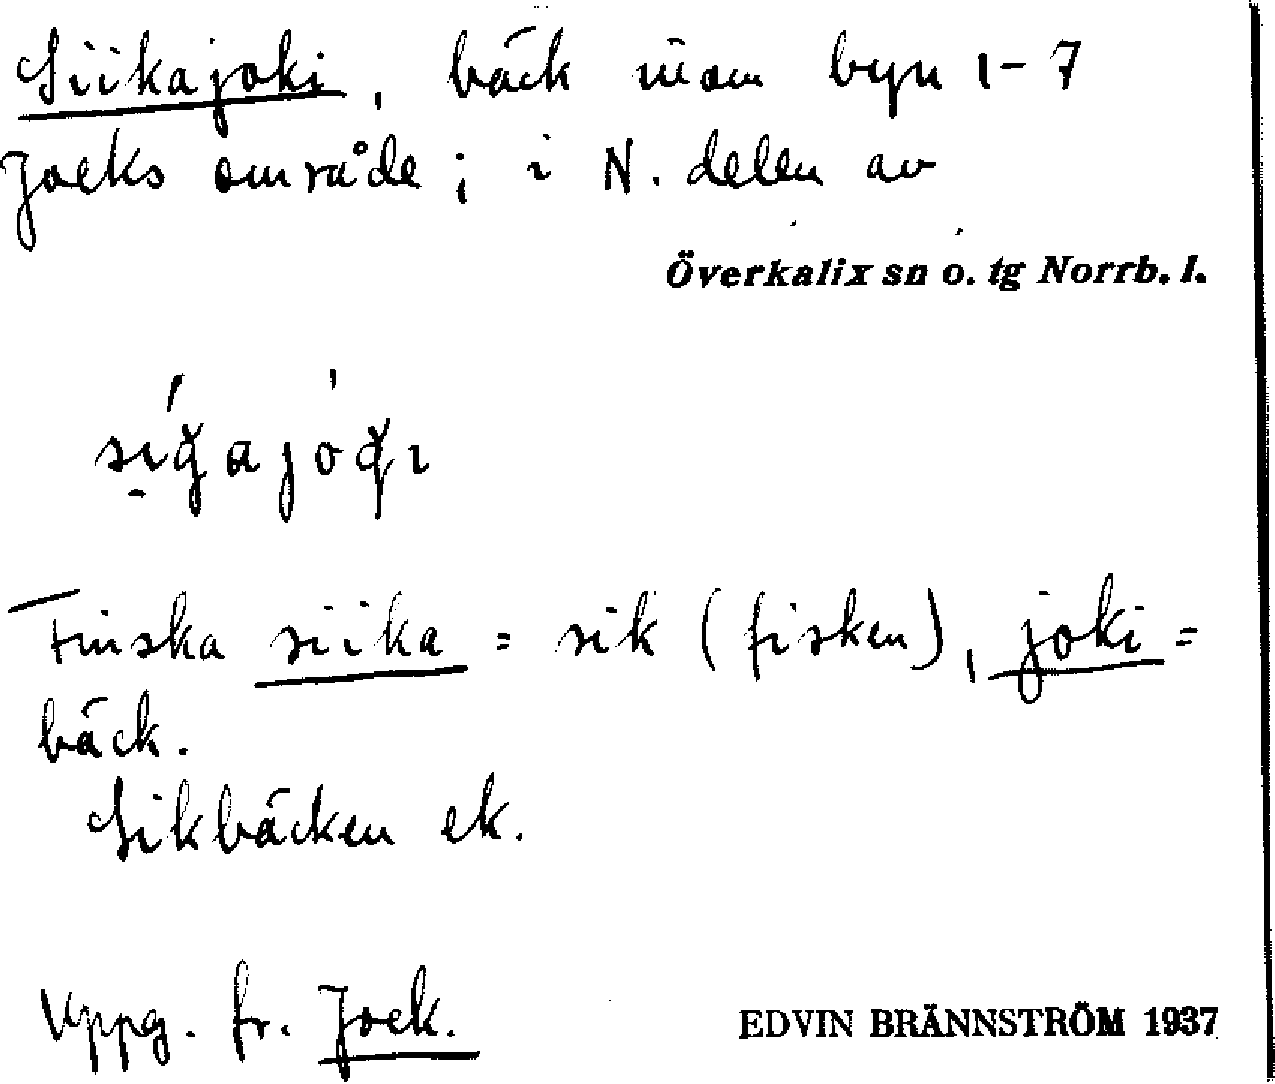 Siikajoki, bäck inom byn 1-7
Joeks område; i N. delen av
Överkalix sn o. tg Norrb. l.
Finska siika = sik (fisken), joki =
bäck.
Sikbäcken ek.
Uppg. fr. Joek.
EDVIN BRÄNNSTRÖM 1937